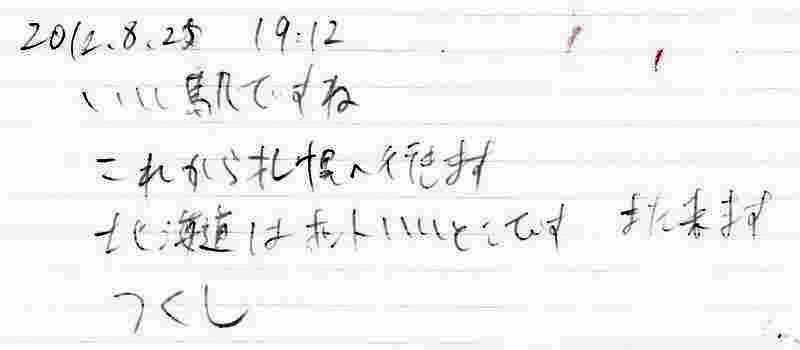 2012.8.25 19:12
いい駅ですね
これから札幌へ行きます
北海道はホントいいとこです また来ます
つくし